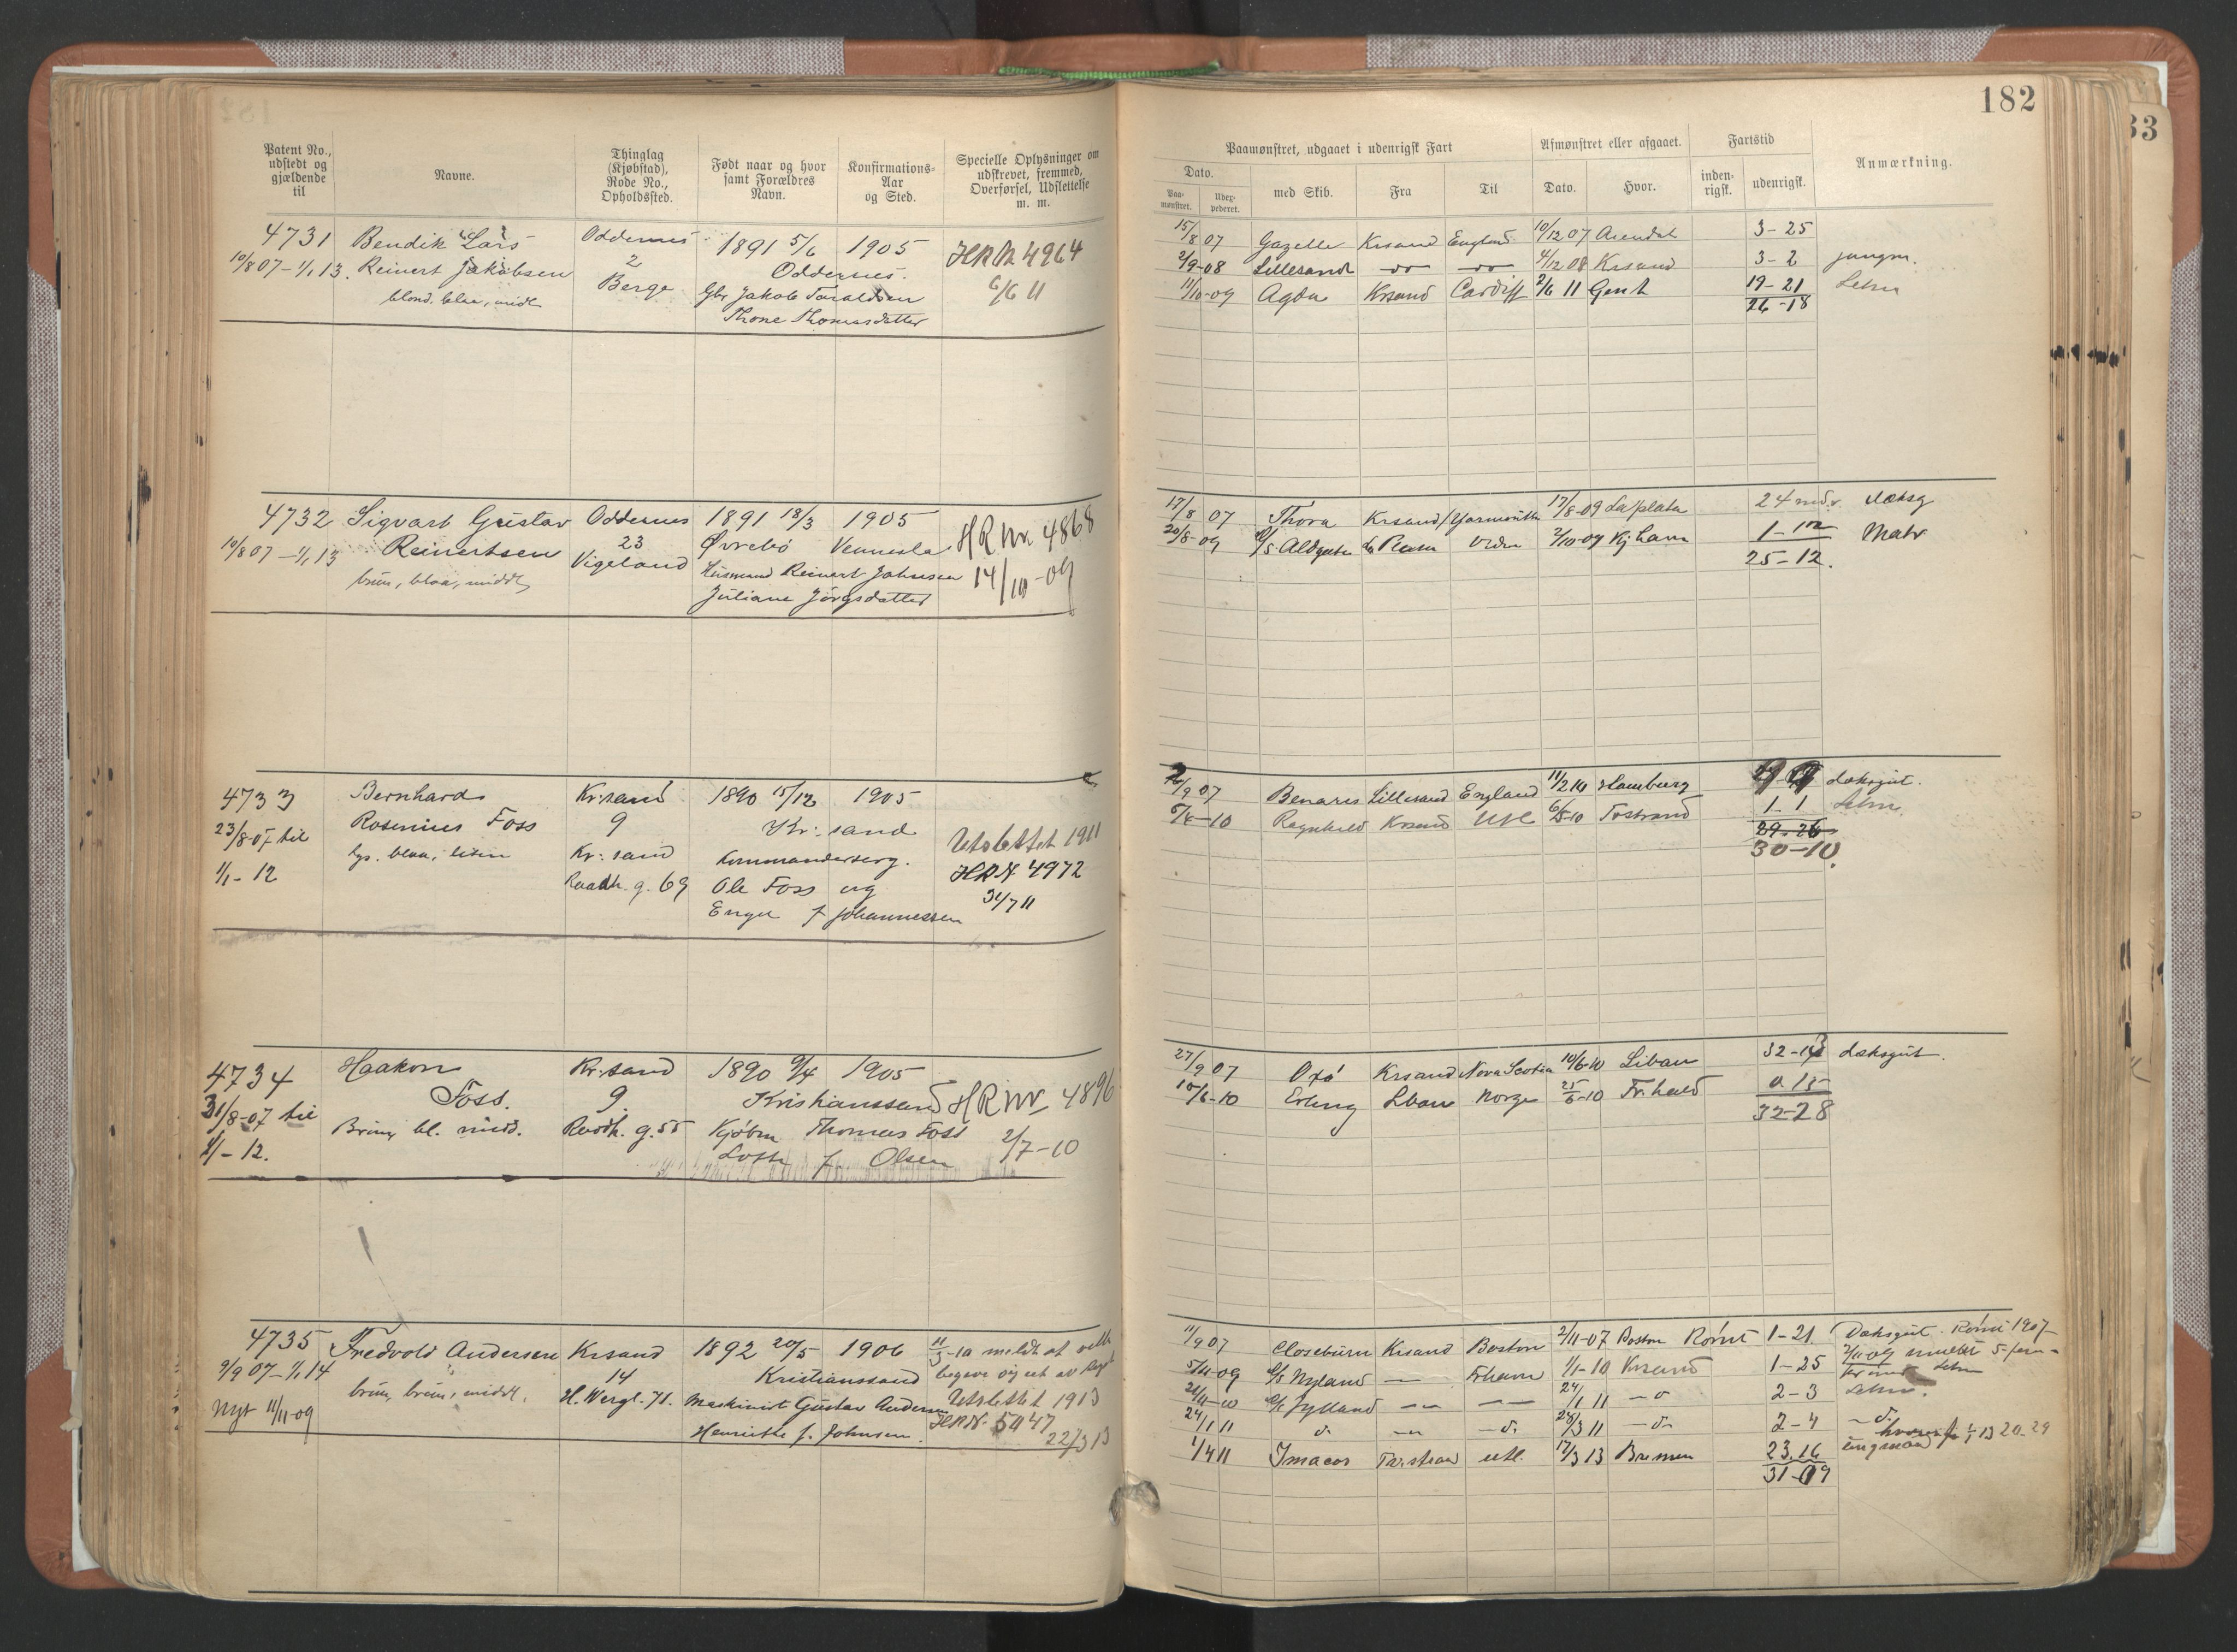 182
33
Patent No., udstedt og gjældende til
Navne.
Thinglag (Kjøbstad), Rode No., Opholdssted.
Født naar og hvor samt Forældres Navn.
Konfirmations-Aar og Sted.
Specielle Oplysninger om udskrevet, fremmed, Overførsel, Udslettelse m. m.
Paamønstret, udgaaet i udenrigsk Fart
Afmønstret eller afgaaet.
Fartstid
Anmærkning.
Dato.
Paamønstret.
Udexpederet.
med Skib.
Fra
Til
Dato.
Hvor.
indenrigsk.
udenrigsk.
4731 Bendik Lars Oddernes 1891 5/6 1905 HR N 4964
10/8 07 - 1/1 13. Reinert Jakobsen 2 Oddernes. 6/6 11
blond, blaa, midl Berge Gbr Jakob Taraldsen
Thone Thomasdatter
15/8 07 Gazelle Krsand England 10/12 07 Arendal 3-25
2/9-08 Lillesand do do 4/12 08 Krsand 3-2 jungm.
11/10-09 Agda Krsand Cardiff 2/6 11 Gent 19-21 Letm
26-18
4732 Sigvart Gustav Oddernes 1891 18/3 1905 HR Nr. 4868
10/8 07 - 1/1 13 Reinertsen 23 Øvrebø Vennesla 14/10-09
brun, blaa, middl Vigeland Husmand Reinert Johnsen
Juliane Jørgsdatter
17/8 07 Thora Krsand Yarmouth 17/8-09 Laplata 24 md. Dæksg
20/8-09 2/10-09 Kjhavn 1-12 Matr
25-12.
4733 Bernhard Kr:sand 1890 15/12 1905
23/8-07 til Rosenius Foss 9 Kr:sand Utslettet 1911
1/1-12 lys. blaa, liden Kr:sand Kommanderserg. HR N 4972
Raadh. g. 69 Ole Foss og 31/7 11
Enger f Johannessen
2/9 07 Benares Lillesand England 11/2 10 Hamburg dæksgut.
5/4-10 Ragnhild Krsand Utl 6/5-10 Tostrand 1-1 Letm
29-26
30-10.
4734 Haakon Kr:sand 1890 9/4 1905
31/8-07 til Foss. 9 Kristianssand HR Nr 4896
1/1-12. Brun, bl. midd. Raadh. g. 55 Kjøbm Thomas Foss 2/7-10
Lotte f Olsen
27/9 07 Oxø Krsand Nova Scotia 10/6-10 Libau 32-13 dæksgut.
10/6-10 Erling Libau Norge 25/6-10 Fr.hald 0.15
32-28
4735 Fredvold Andersen Krsand 1892 20/5 1906 11/3-10 meldt at ville
9/9 07 - 1/1 14 14 Kristianssand begive sig ut av Riget
brun, brun, middl. H. Wergl. 71. Maskinist Gustav Andersen Utslettet 1913
Nyt 11/11-09 Henriette f. Johnsen HR N. 5047
22/3 13
11/9 07 Closeburn Krsand Boston 2/11-07 Boston Rømt 1-21 Dæksgut. Rømt 1907
5/11-09 S/S Nyland Khavn 1/1-10 Krsand 1-25 Letm
S/S Jylland 24/1 11 2-3 Letm.
24/1 11 do 28/3 11 do 2-4 do
1/4 11 Imacos Tv.strand utl. 17/3 13 Bremen 23.16 ungmand
31-09